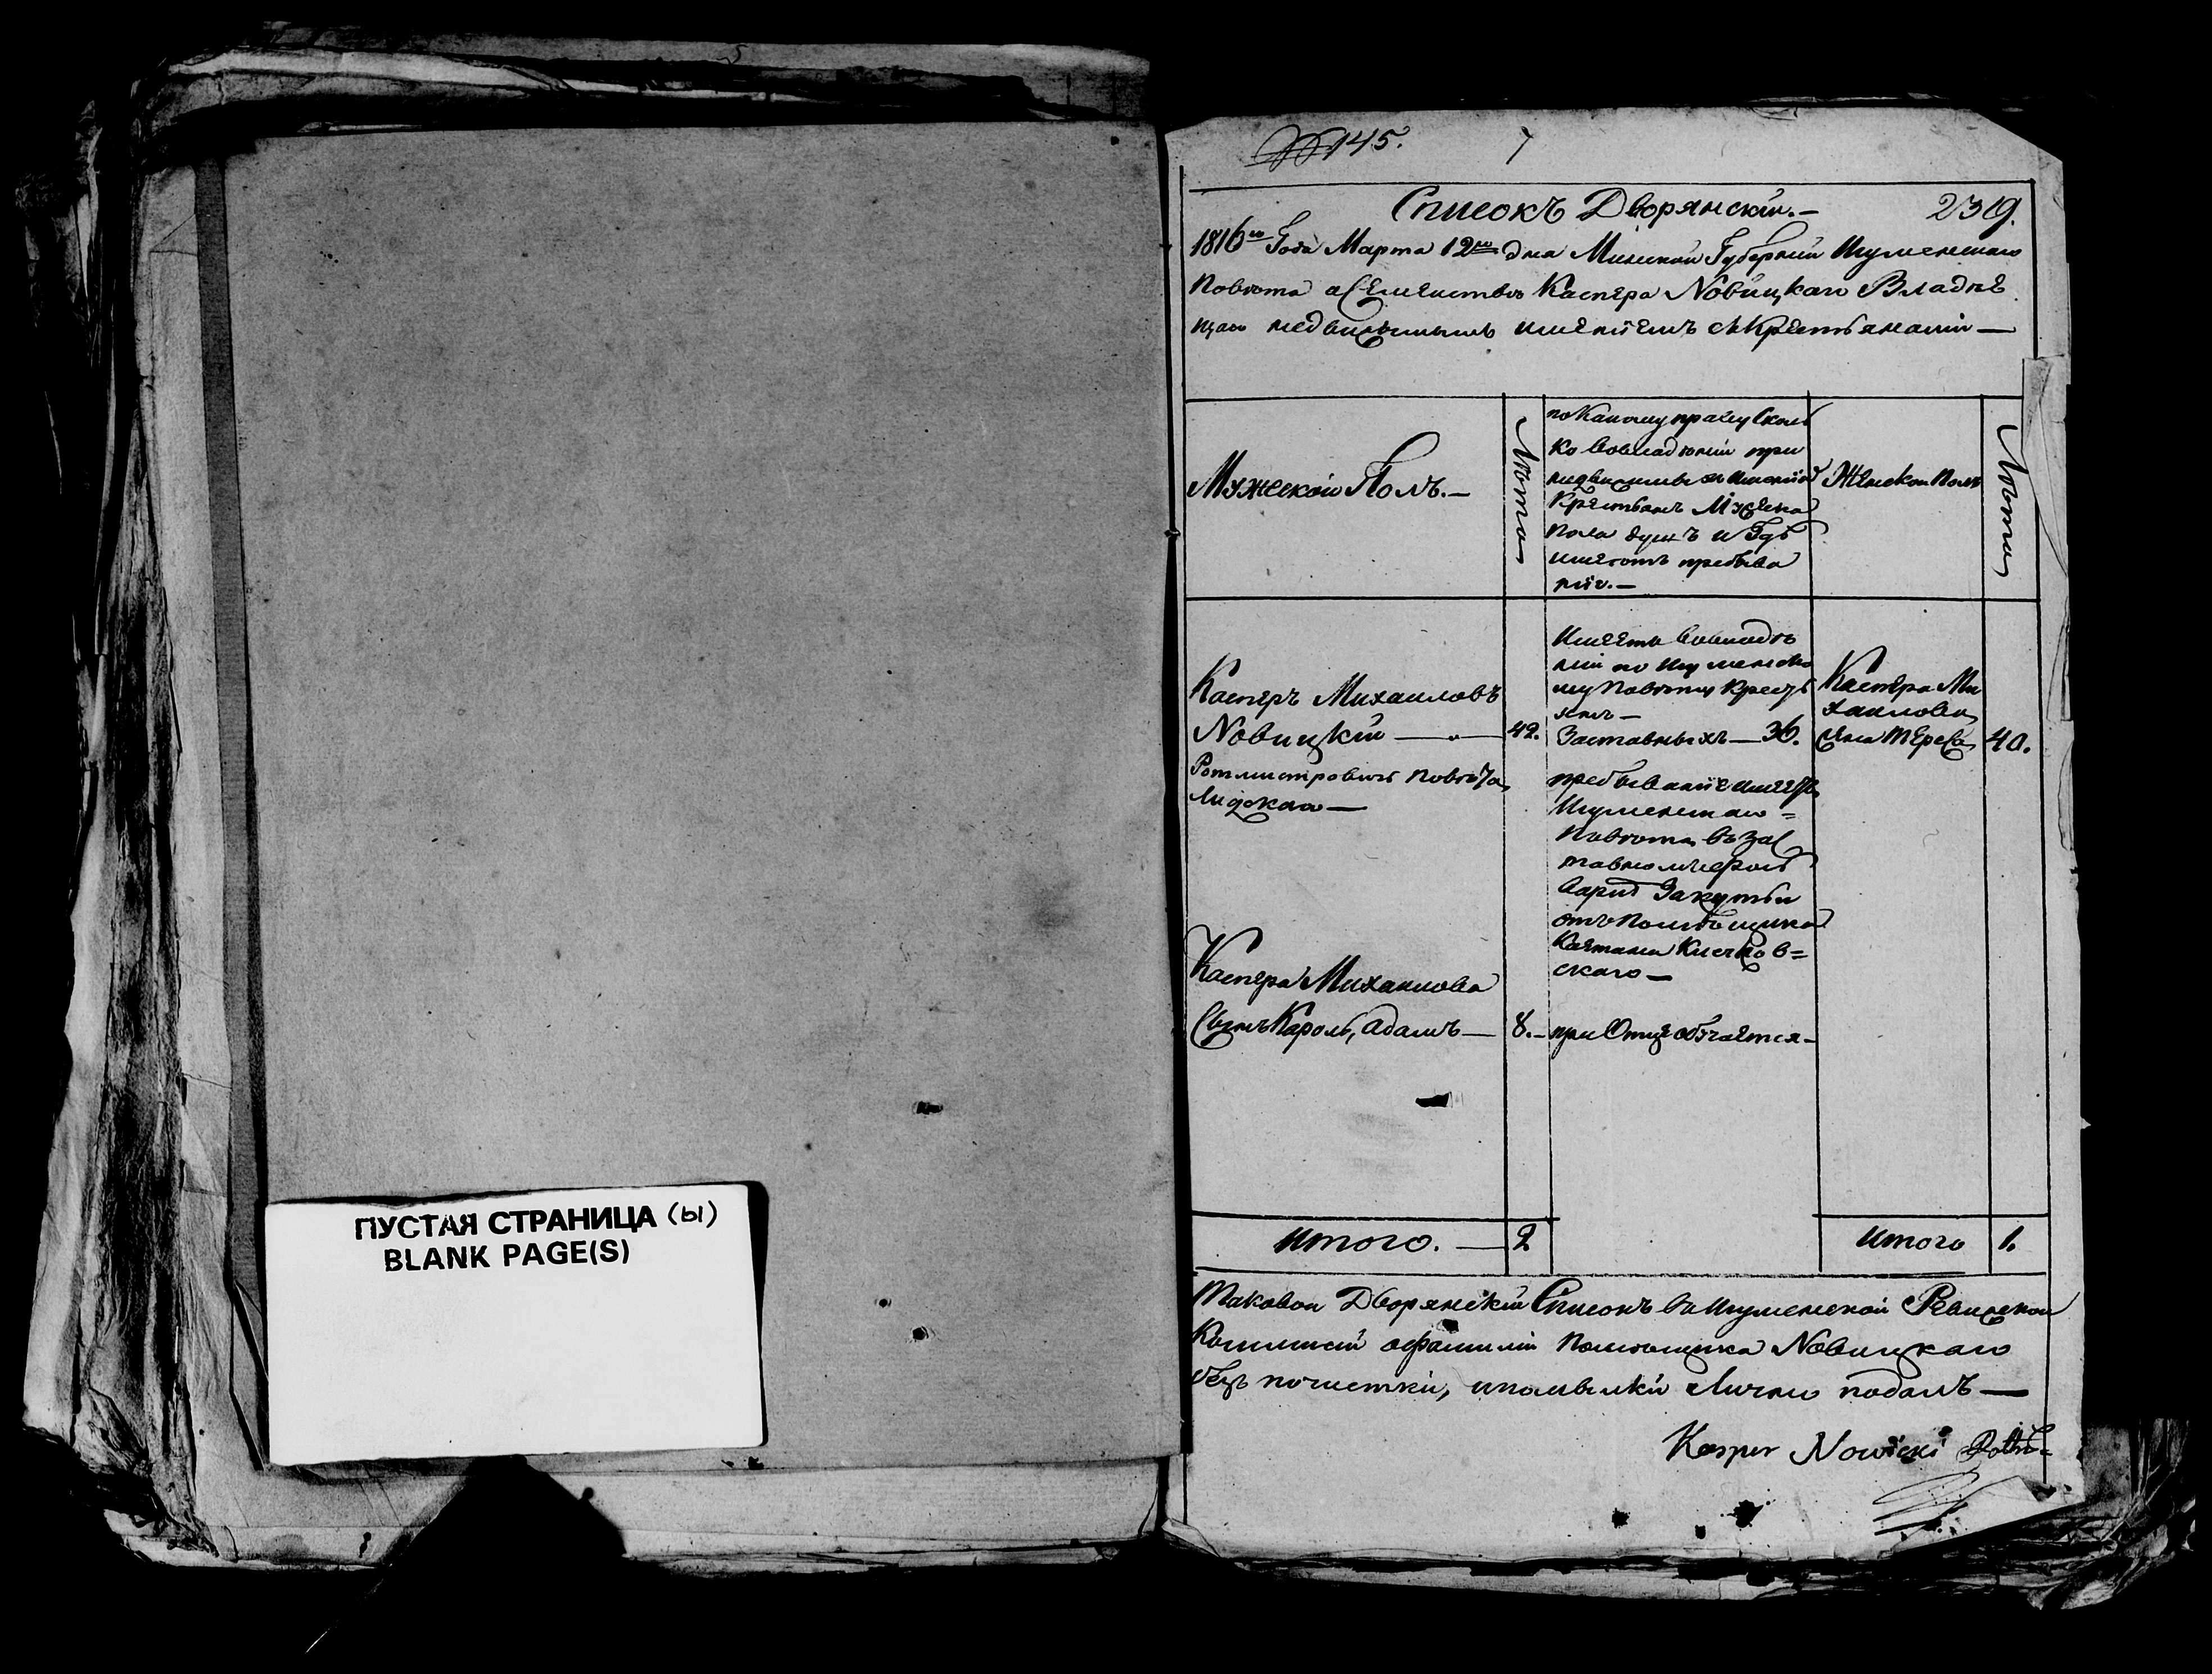 № 145.
7
Списокъ Дворянскій.—
239.
1816го Года Марта 12го дня Минской Губерніи Игуменскаго
Повѣта о Семействѣ Каспера Новицкаго Владѣе
щаго недвижимымъ имѣніемъ съ Крестьянами—
Мужескои Полъ.—
Лѣта
по Какому праву Сколь
ко во владѣніи при
недвижимы мъ имѣніи
Крестьянъ Мужеска
Пола душъ и Гдѣ
имѣютъ пребыва
ніе.—
Женскои Полъ
Лѣта
Касперъ Михаиловъ
Новицкій — „ —
42.
Ротмистровичъ Повѣта
Лидскаго—
Имѣетъ во владѣ
ніи по Игуменско
му Повѣту Кресть
янъ—
Заставныхъ—36.
пребываніе имѣетъ
Игуменскаго=
Повѣта въ зас
тавномъ
от Помѣщика
Каетана
скаго—
Каспера Ми
хаилова
Жена Тереса
40.
Каспера Михаилова
Сынъ Кароль, Адамъ—
8.—
при Отце обучается—
Итого.—
2
Итого
1.
Таковои Дворянскій Списокъ въ Игуменской Ревизской
Коммисіи о фамиліи Помѣщика Новицкаго
безъ почистки, и помылки Лично подалъ—
Kasper Nowicki
ПУСТАЯ СТРАНИЦА (Ы)
BLANK PAGE(S)